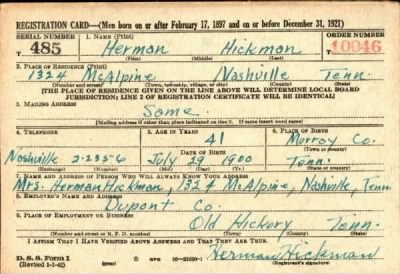 REGISTRATION CARD—(Men born on or after February 17, 1897 and on or before December 31, 1921)
SERIAL NUMBER 1. NAME (Print) ORDER NUMBER
T 485 Herman Hickman T 10046
(First) (Middle) (Last)
2. PLACE OF RESIDENCE (Print)
1324 McAlpine Nashville Tenn.
(Number and street) (Town, township, village, or city) (County) (State)
[THE PLACE OF RESIDENCE GIVEN ON THE LINE ABOVE WILL DETERMINE LOCAL BOARD
JURISDICTION; LINE 2 OF REGISTRATION CERTIFICATE WILL BE IDENTICAL]
3. MAILING ADDRESS
Same
[Mailing address if other than place indicated on line 2. If same insert word same]
4. TELEPHONE 5. AGE IN YEARS 6. PLACE OF BIRTH
41 Murray Co.
DATE OF BIRTH (Town or county)
Nashville 2-2356 July 29 1900 Tenn.
(Exchange) (Number) (Mo.) (Day) (Yr.) (State or country)
7. NAME AND ADDRESS OF PERSON WHO WILL ALWAYS KNOW YOUR ADDRESS
Mrs. Herman Hickman, 1324 McAlpine, Nashville, Tenn.
8. EMPLOYER'S NAME AND ADDRESS
Dupont Co.
9. PLACE OF EMPLOYMENT OR BUSINESS
Old Hickory Tenn.
(Number and street or R. F. D. number) (Town) (County) (State)
I AFFIRM THAT I HAVE VERIFIED ABOVE ANSWERS AND THAT THEY ARE TRUE.
D. S. S. Form 1
(Revised 9-1-42) GPO 16-21630-1 Herman Hickman
(Registrant's signature)